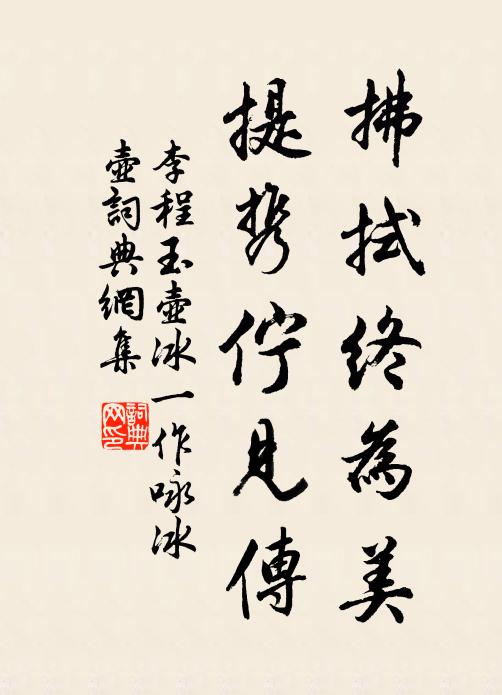 拂拭终為美
提携佇見傳
李程玉壺冰一作咏冰
壺詞典網集
詞典
网印